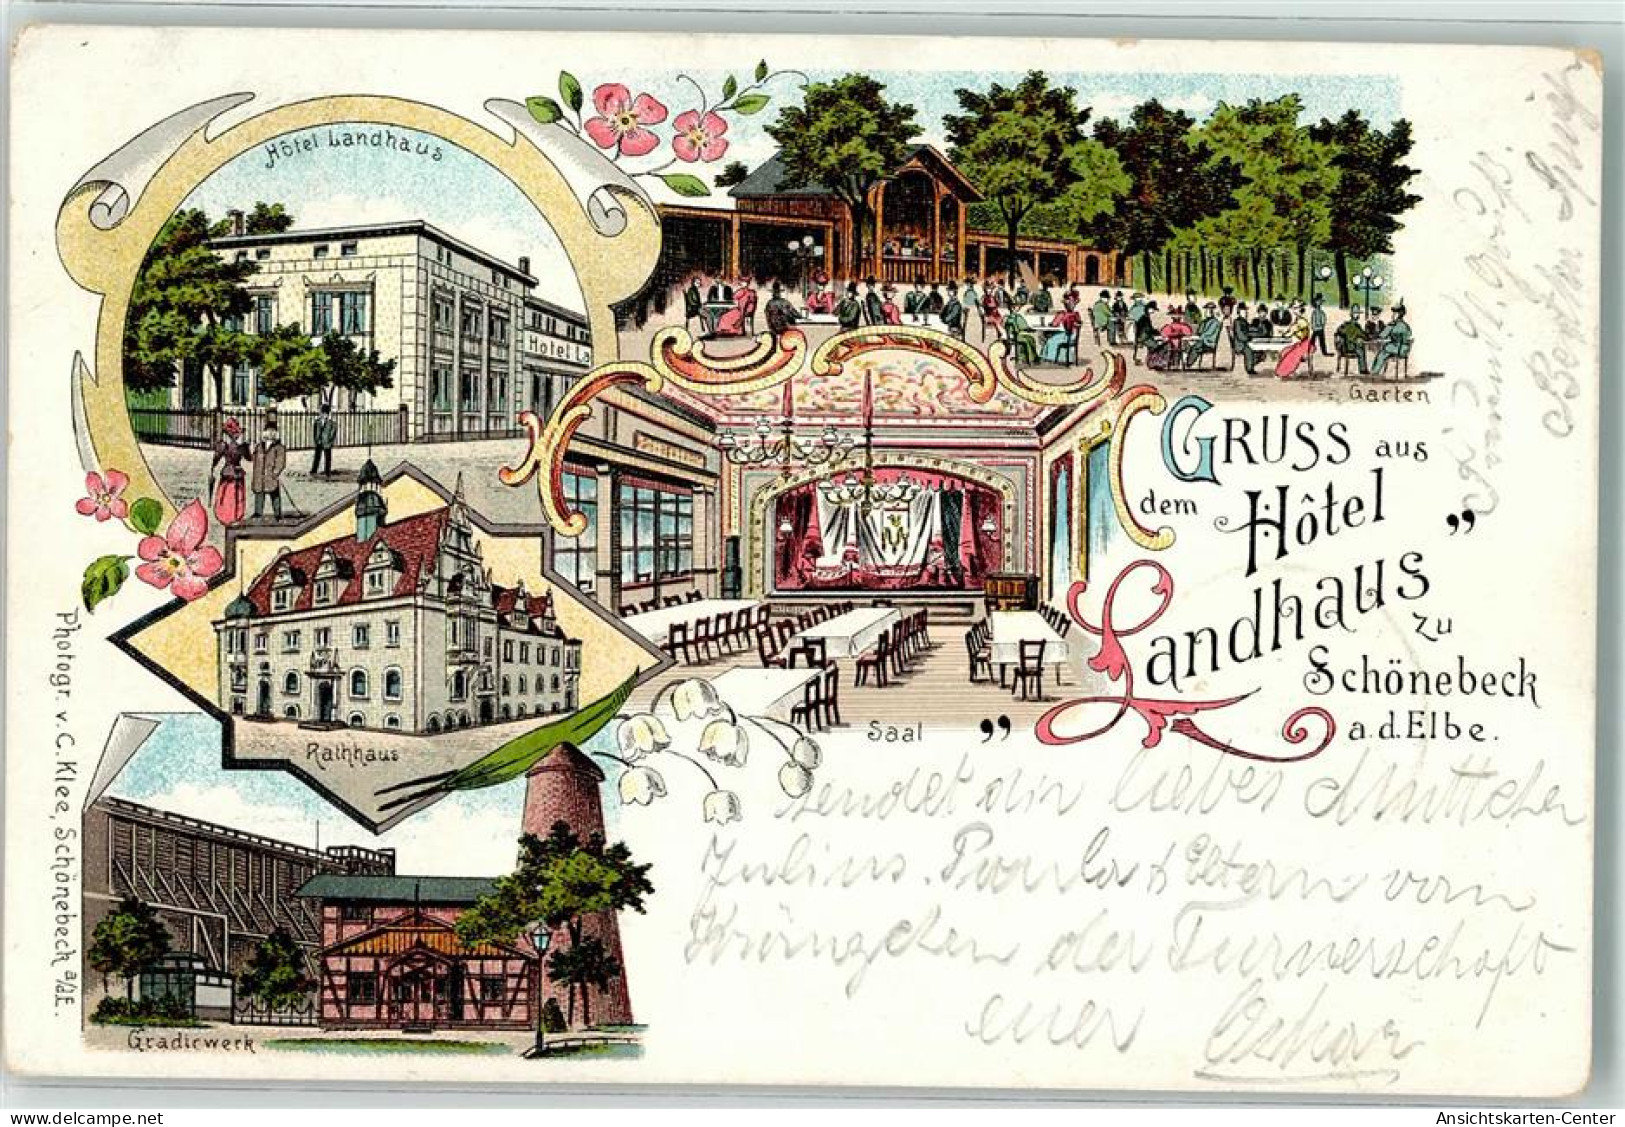 Hôtel Landhaus
Hotel La
Garten
GRUSS aus
dem Hôtel
„Landhaus”
zu
Schönebeck
a.d.Elbe.
Saal
Rathhaus
Gradirwerk
Photogr. v. C. Klee, Schönebeck a/d.E.
sendet dir liebes Muttchen
Julius. Paula & Eltern vom
Kränzchen der Turnerschaft
euer Oskar
Ansichtskarten-Center